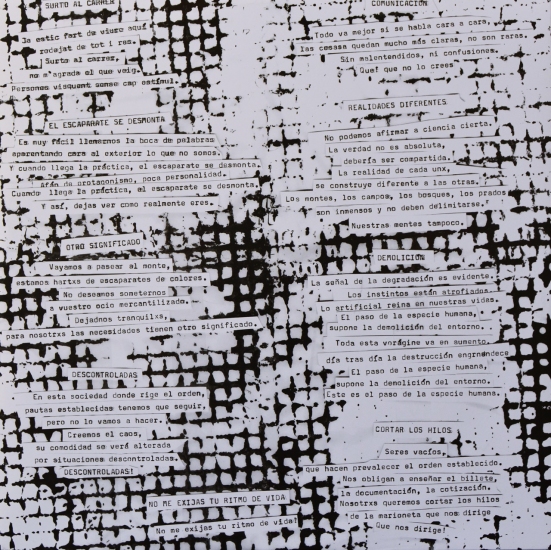 SURTO AL CARRER
Ja estic fart de viure aquí
rodejat de tot i res.
Surto al carrer,
no m'agrada el que veig.
Persones visquent sense cap estímul.
EL ESCAPARATE SE DESMONTA
Es muy fácil llenarnos la boca de palabras
aparentando cara al exterior lo que no somos.
Y cuando llega la práctica, el escaparate se desmonta.
Afán de protagonismo, poca personalidad.
Cuando llega la práctica, el escaparate se desmonta.
Y así, dejas ver como realmente eres.
OTRO SIGNIFICADO
Vayamos a pasear al monte,
estamos hartxs de escaparates de colores.
No deseamos someternos
a vuestro ocio mercantilizado.
Dejadnos tranquilxs,
para nosotrxs las necesidades tienen otro significado.
DESCONTROLADAS
En esta sociedad donde rige el orden,
pautas establecidas tenemos que seguir,
pero no lo vamos a hacer.
Creemos el caos,
su comodidad se verá alterada
por situaciones descontroladas.
DESCONTROLADAS!
NO ME EXIJAS TU RITMO DE VIDA
No me exijas tu ritmo de vida!
COMUNICACIÓN
Todo va mejor si se habla cara a cara,
las cosas quedan mucho más claras, no son raras.
Sin malentendidos, ni confusiones.
Qué? que no lo crees
REALIDADES DIFERENTES
No podemos afirmar a ciencia cierta.
La verdad no es absoluta,
debería ser compartida.
La realidad de cada unx,
se construye diferente a las otras.
Los montes, los campos, los bosques, los prados
son inmensos y no deben delimitarse.
Nuestras mentes tampoco.
DEMOLICIÓN
La señal de la degradación es evidente.
Los instintos están atrofiados
Lo artificial reina en nuestras vidas.
El paso de la especie humana,
supone la demolición del entorno.
Toda esta vorágine va en aumento,
día tras día la destrucción engrandece
El paso de la especie humana,
supone la demolición del entorno.
Este es el paso de la especie humana.
CORTAR LOS HILOS
Seres vacíos,
que hacen prevalecer el orden establecido.
Nos obligan a enseñar el billete,
la documentación, la cotización.
Nosotrxs queremos cortar los hilos
de la marioneta que nos dirige
Que nos dirige!